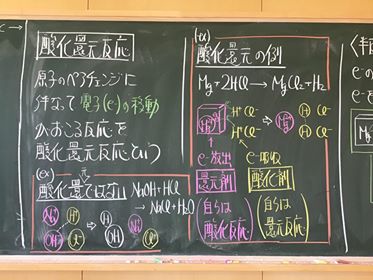 酸化還元反応
原子のペアチェンジに
伴なって電子(e⁻)の移動
がおこる反応を
酸化還元反応という
(ex)
酸化還元ではない
NaOH + HCl
→ NaCl + H₂O
Na⁺ H⁺
OH⁻ Cl⁻
(ex)
酸化還元の例
Mg + 2HCl → MgCl₂ + H₂
H⁺ Cl⁻
H⁺ Cl⁻
e⁻放出 e⁻吸収
還元剤 酸化剤
自らは
酸化反応
自らは
還元反応
e⁻の